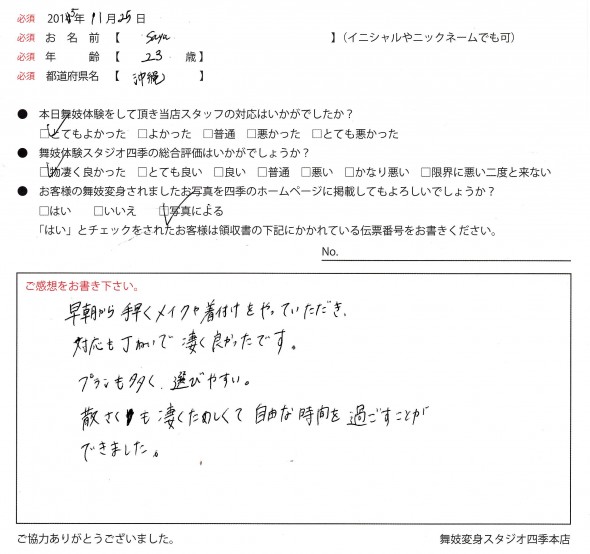 必須 2015年 11月 25日
必須 お 名 前 【 Saya 】(イニシャルやニックネームでも可)
必須 年 齢 【 23 歳】
必須 都道府県名 【 沖縄 】
● 本日舞妓体験をして頂き当店スタッフの対応はいかがでしたか？
□とてもよかった □よかった □普通 □悪かった □とても悪かった
● 舞妓体験スタジオ四季の総合評価はいかがでしょうか？
□物凄く良かった □とても良い □良い □普通 □悪い □かなり悪い □限界に悪い二度と来ない
● お客様の舞妓変身されましたお写真を四季のホームページに掲載してもよろしいでしょうか？
□はい □いいえ □写真による
「はい」とチェックをされたお客様は領収書の下記にかかれている伝票番号をお書きください。
No.
ご感想をお書き下さい。
早朝から手早くメイクや着付けをやっていただき、
対応も丁ねいで凄く良かったです。
プランも多く、選びやすい。
散さくも凄くたのしくて自由な時間を過ごすことが
できました。
ご協力ありがとうございました。 舞妓変身スタジオ四季本店